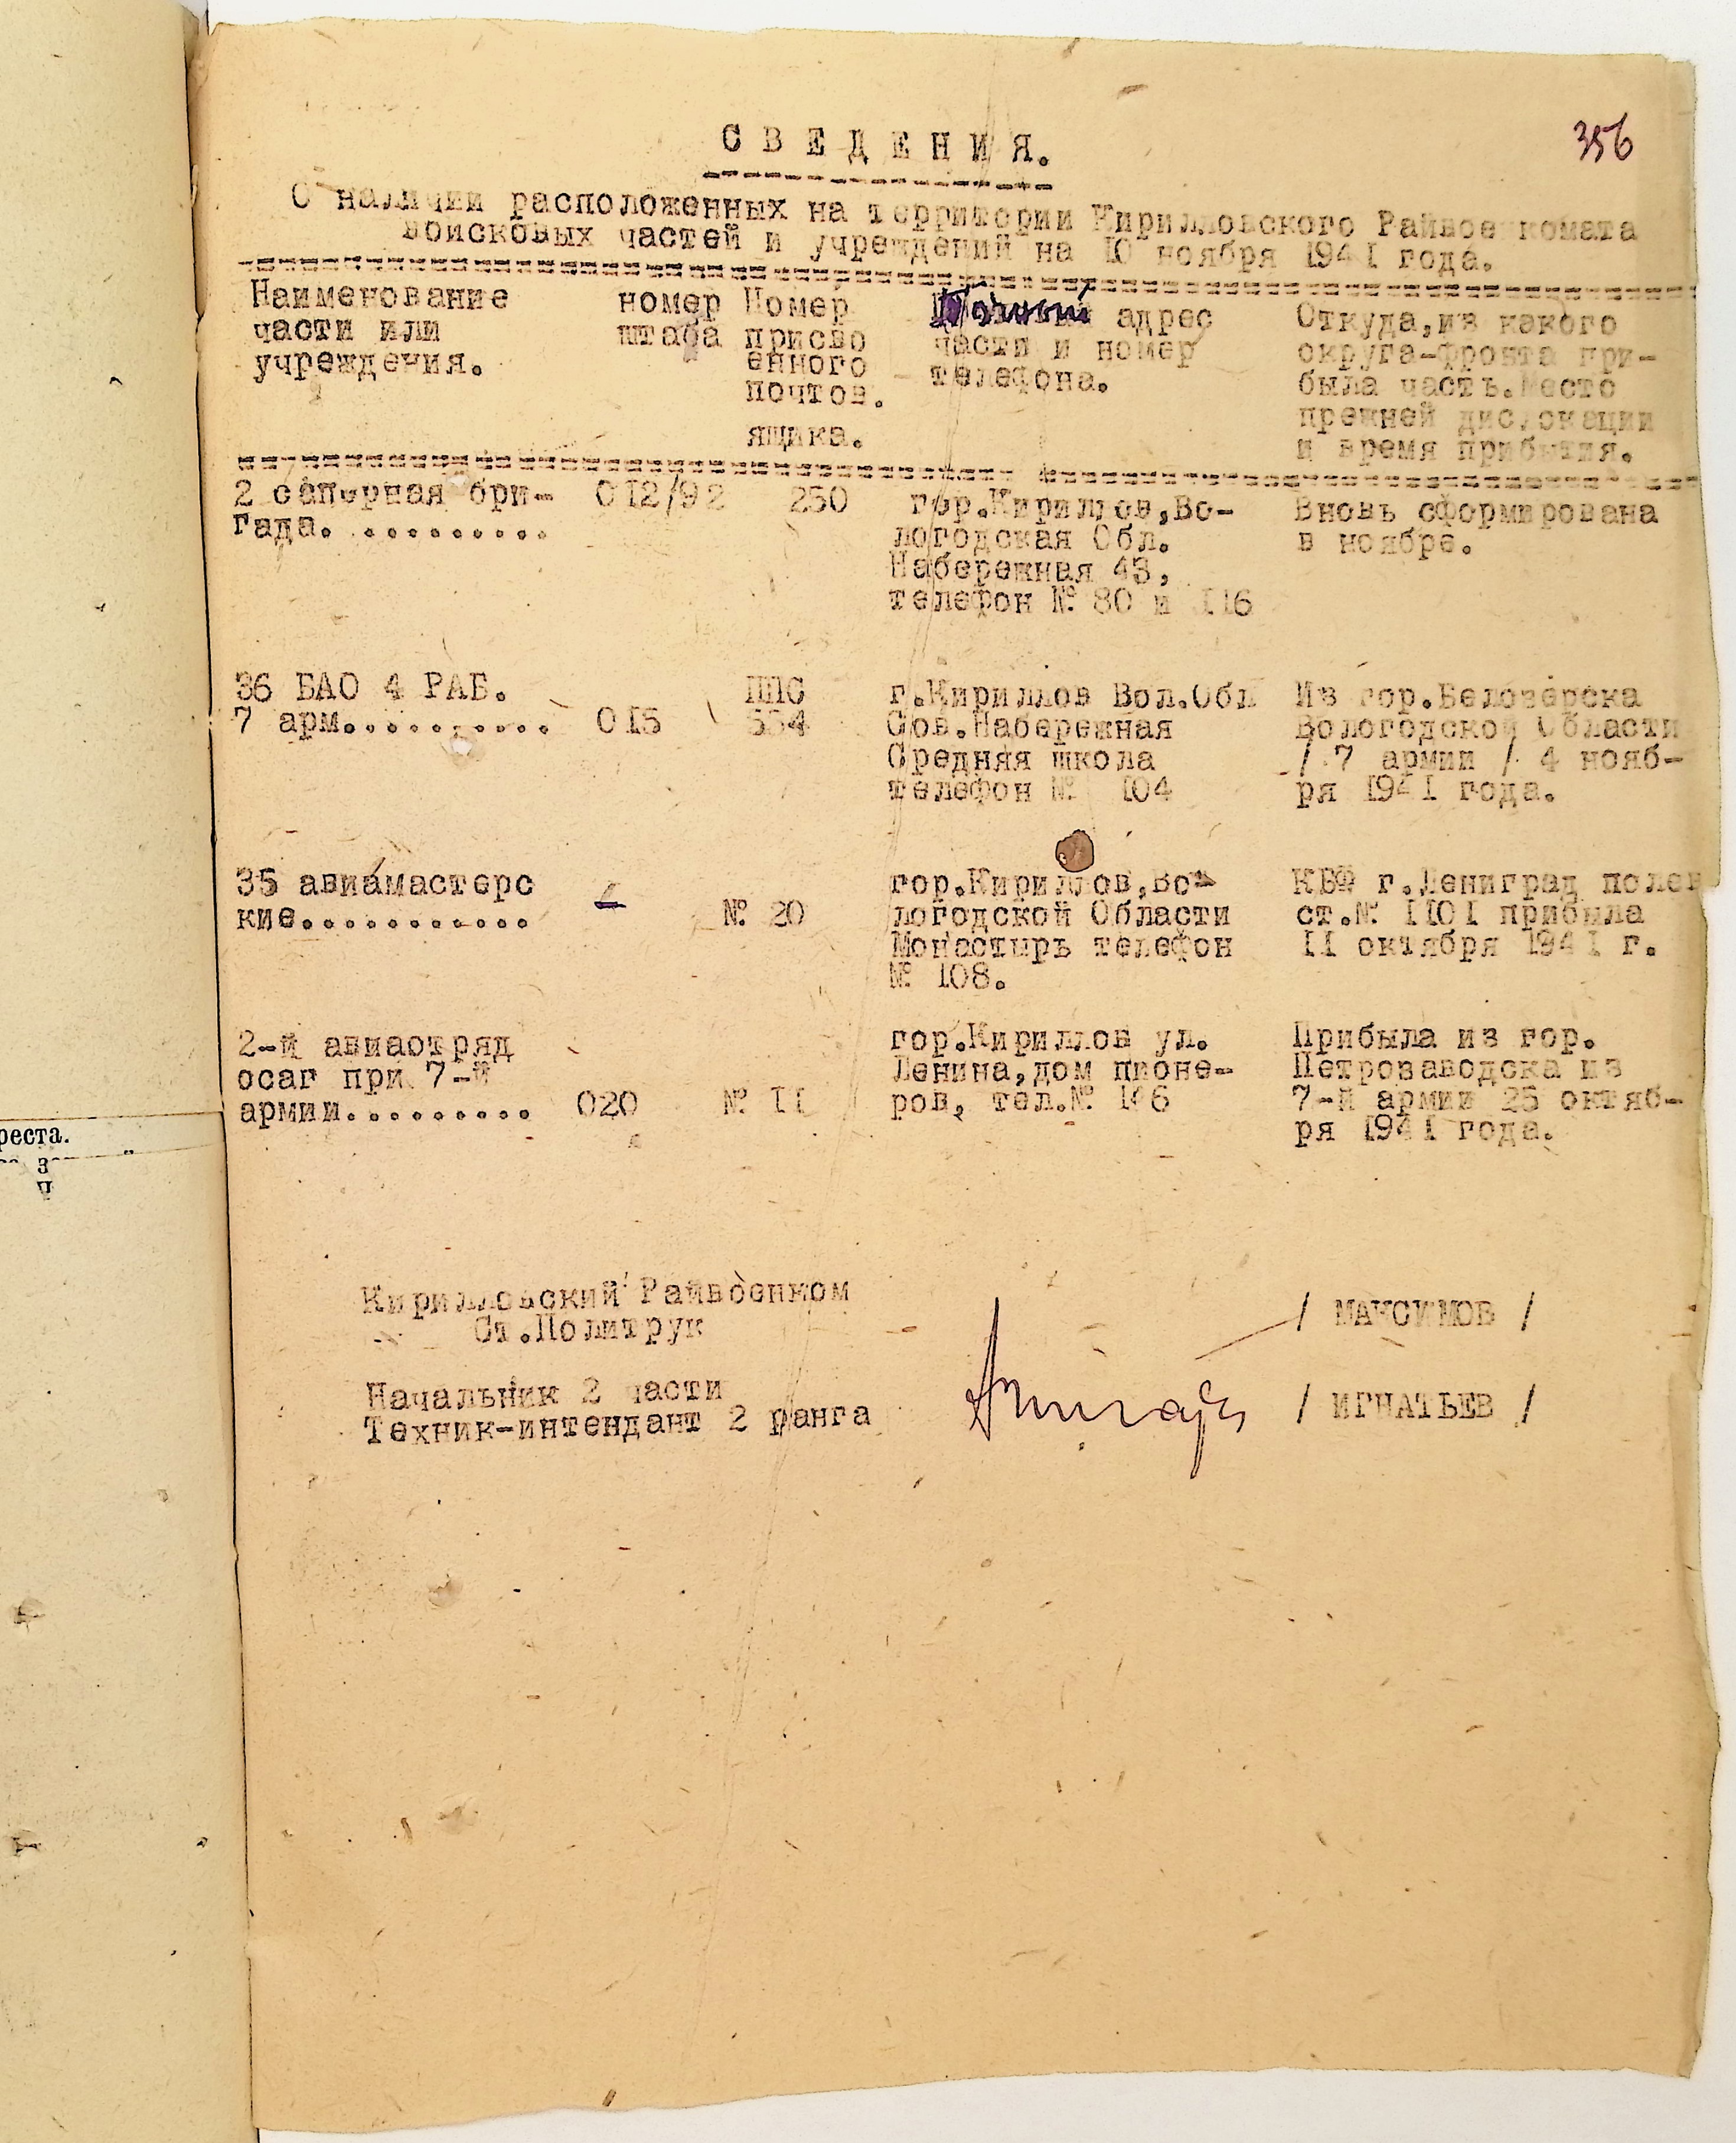 356
С В Е Д Е Н И Я.
О наличии расположенных на территории Кирилловского Райвоенкомата
войсковых частей и учреждений на 10 ноября 1941 года.
Наименование
части или
учреждения.
номер
штаба
Номер
присво
енного
почтов.
ящика.
Точный адрес
части и номер
телефона.
Откуда,из какого
округа-фронта при-
была часть.Место
прежней дислокации
и время прибытия.
2 саперная бри-
гада. ..........
012/92
250
гор.Кириллов,Во-
логодская Обл.
Набережная 43,
телефон № 80 и 116
Вновь сформирована
в ноябре.
36 БАО 4 РАБ.
7 арм...........
015
ППС
554
г.Кириллов Вол.Обл
Сов.Набережная
Средняя школа
телефон № 104
Из гор.Белозерска
Вологодской Области
/ 7 армии / 4 нояб-
ря 1941 года.
35 авиамастерс
кие...........
№ 20
гор.Кириллов,Во-
логодской Области
Монастырь телефон
№ 108.
КБФ г.Лениград полев
ст.№ 1101 прибыла
11 октября 1941 г.
2-й авиаотряд
осаг при 7-й
армии.........
020
№ 11
гор.Кириллов ул.
Ленина,дом пионе-
ров, тел.№
Прибыла из гор.
Петрозаводска из
7-й армии 25 октяб-
ря 1941 года.
Кирилловский Райвоенком
Ст.Политрук
/ МАКСИМОВ /
Начальник 2 части
Техник-интендант 2 ранга
/ ИГНАТЬЕВ /
реста.